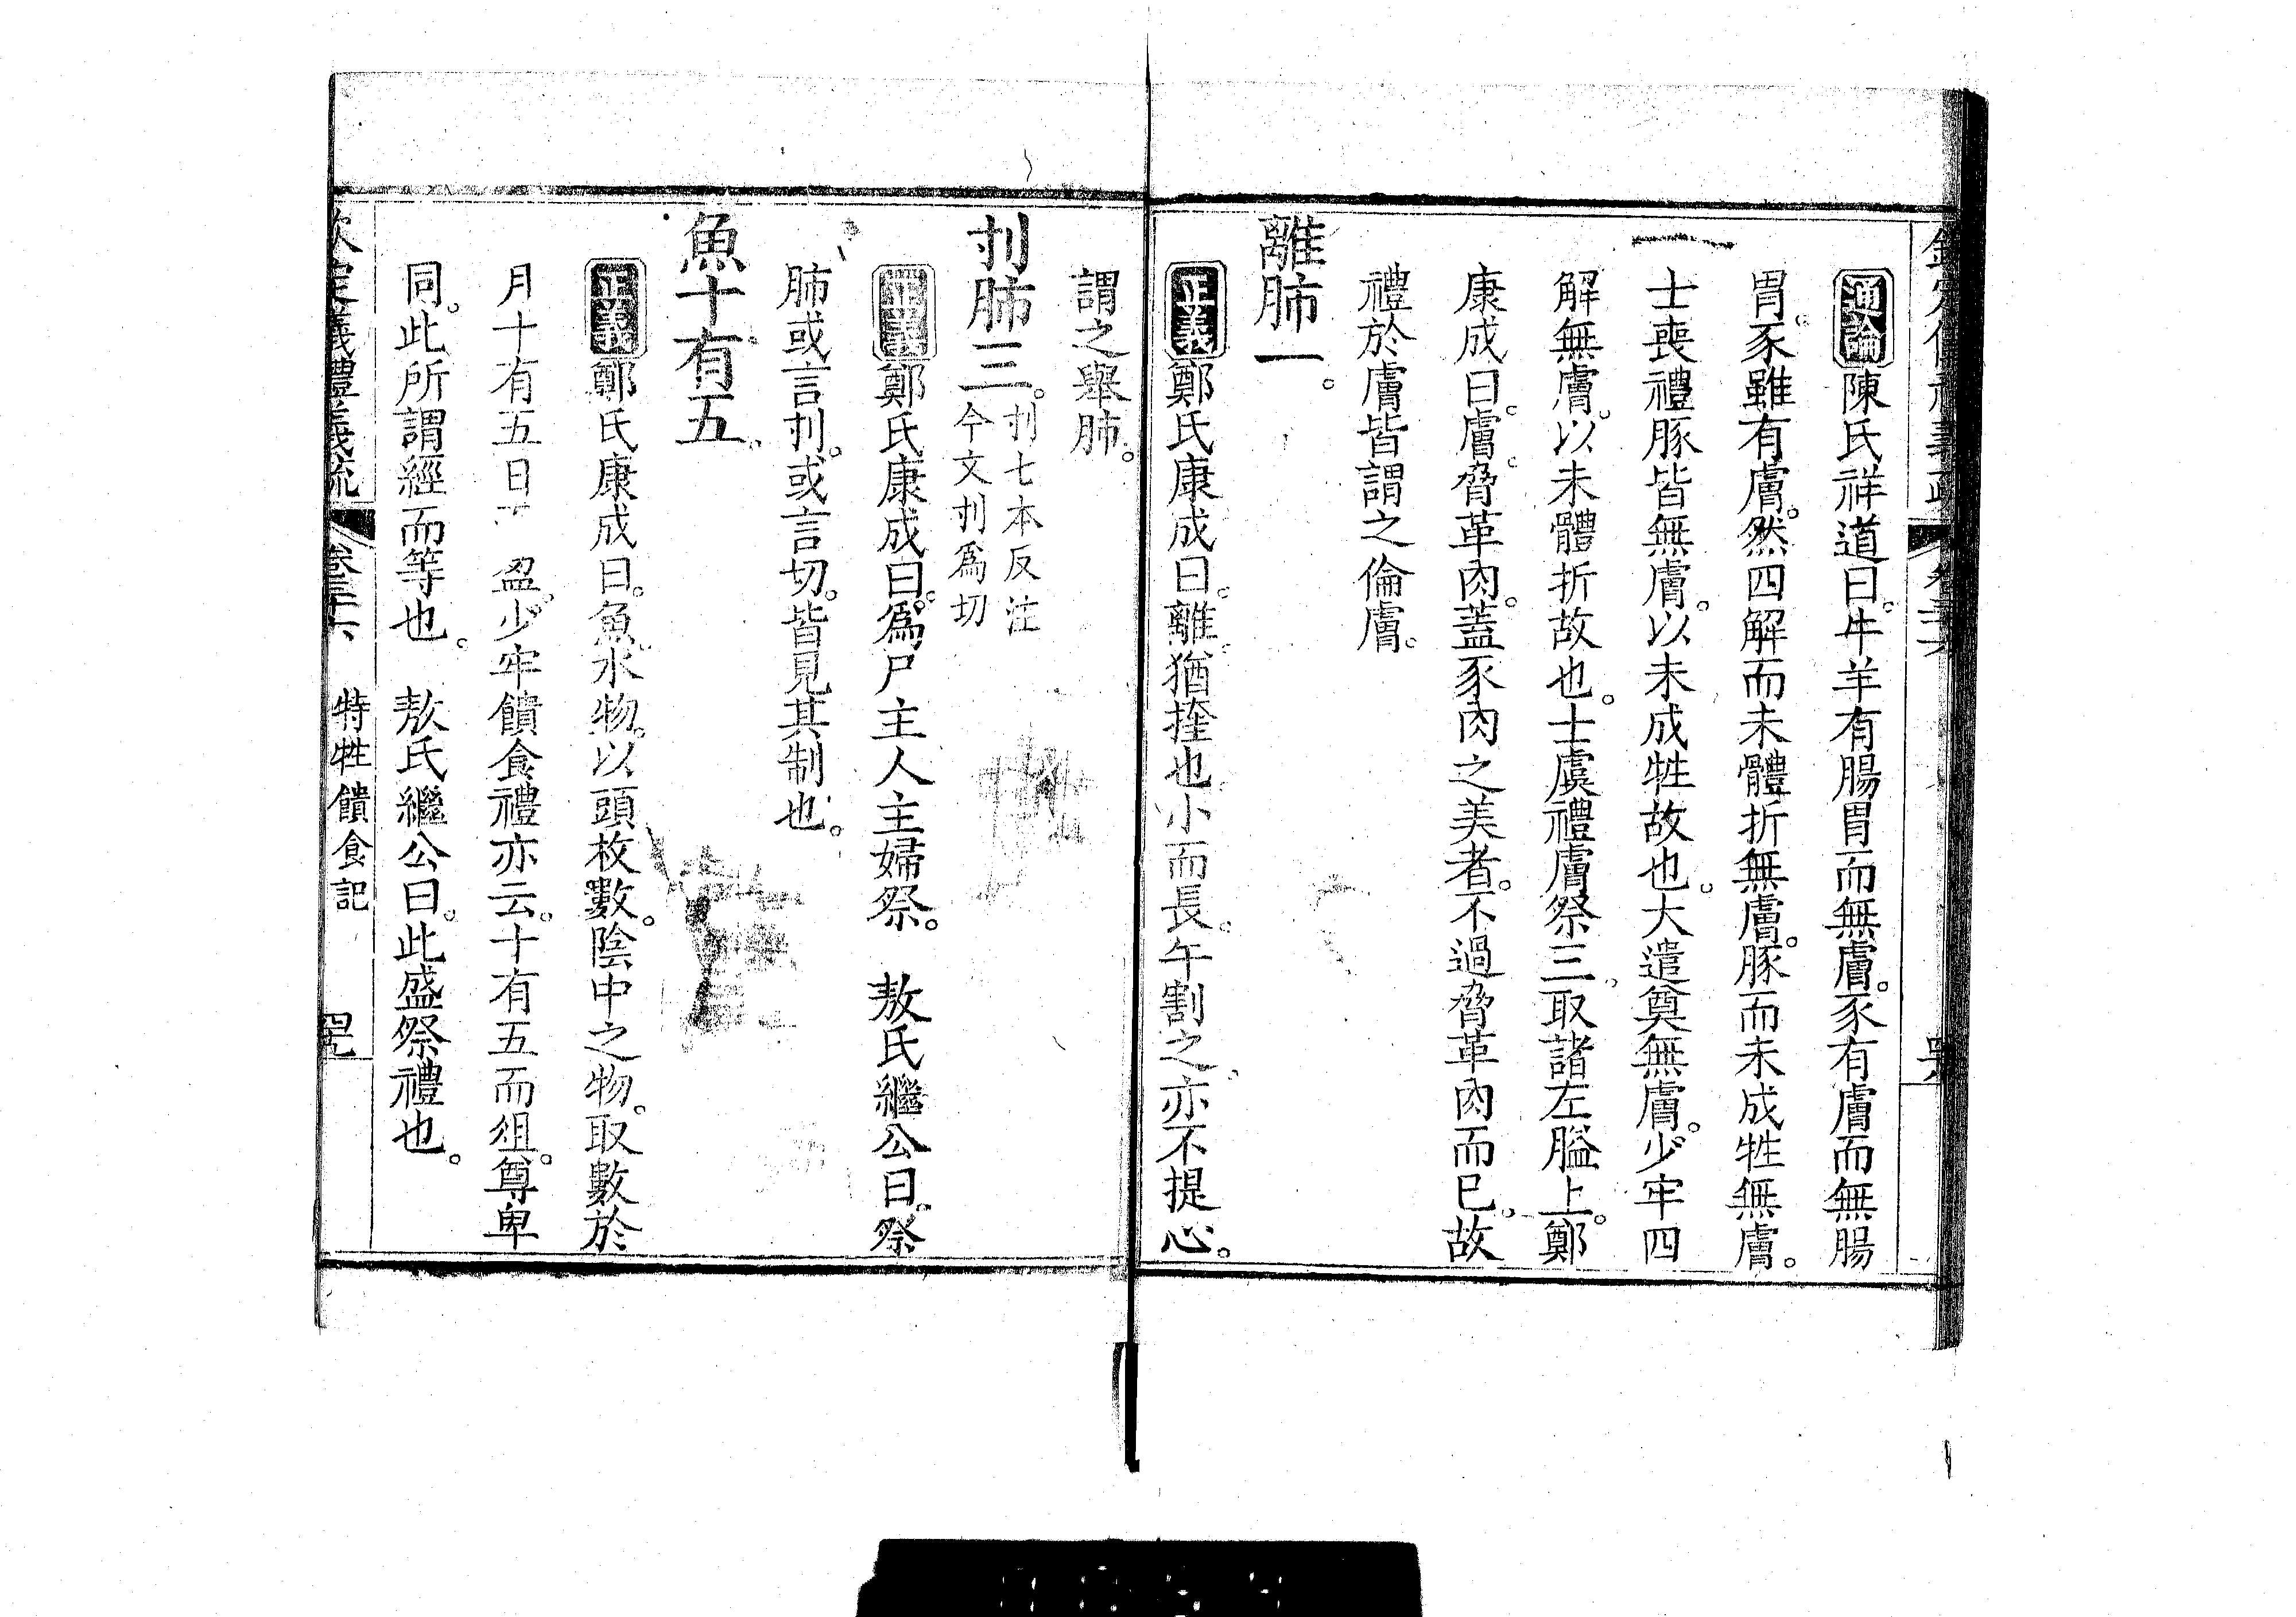 通論陳氏祥道曰。牛羊有腸胃而無膚。豕有膚而無腸
胃。豕雖有膚。然四解而未體折無膚。豚而未成牲無膚。
士喪禮豚皆無膚。以未成牲故也。大遣奠無膚。少牢四
解無膚。以未體折故也。士虞禮膚祭三。取諸左膉上。鄭
康成曰。膚。脅革肉。蓋豕肉之美者。不過脅革肉而已。故
禮於膚皆謂之倫膚。
離肺一。
正義鄭氏康成曰。離。猶㨒也。小而長。午割之。亦不提心。
謂之舉肺。
刌肺三。刌七本反注
今文刌爲切
正義鄭氏康成曰。爲尸主人主婦祭。 敖氏繼公曰。祭
肺或言刌。或言切。皆見其制也。
魚十有五。
正義鄭氏康成曰。魚。水物。以頭枚數。陰中之物。取數於
月十有五日 盈。少牢饋食禮亦云。十有五而俎。尊卑
同。此所謂經而等也。 敖氏繼公曰。此盛祭禮也。
欽定儀禮義疏 卷三十六 特牲饋食記